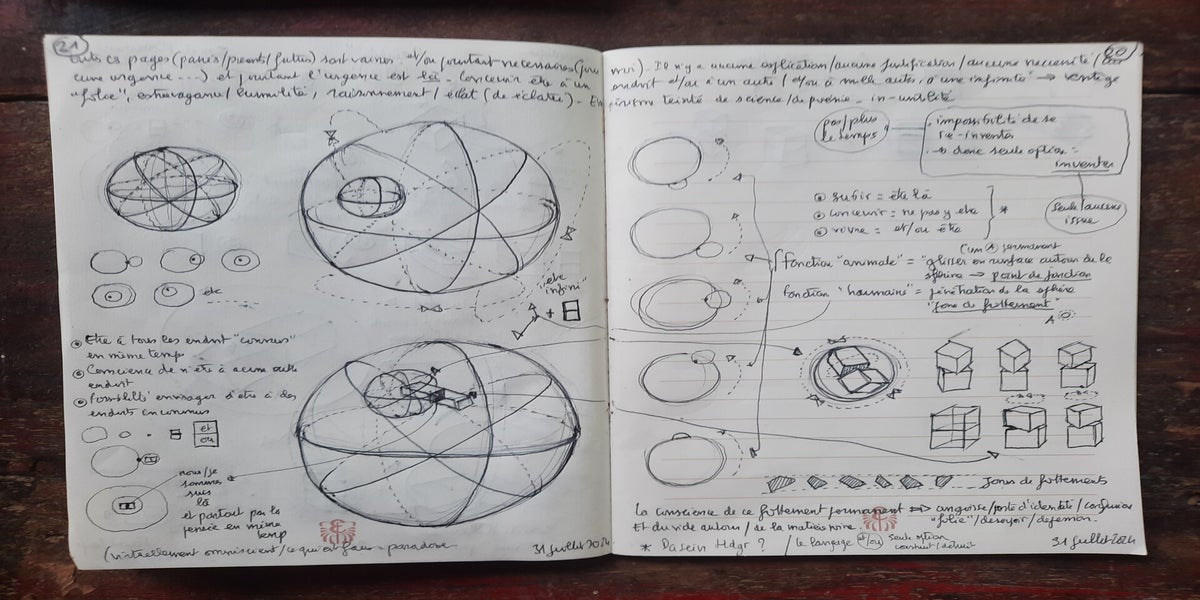 21
ces pages (passés/présents/futurs) sont vaines et/ou pourtant nécessaires (pour
une urgence ...) et pourtant l'urgence est là - concevoir être à un
"folie", extravagance/humilité, raisonnement/éclat (de éclatée) - En
être infini
+
etc
Etre à tous les endroits "connus"
en même temps
Conscience de n'être à aucun autre
endroit
Possibilité envisager d'être à des
endroits inconnus
et
ou
nous/je
sommes
suis
là
et partout par la
pensée en même
temps
(virtuellement omniscient/ce qui est faux - paradoxe
31 juillet 2024
20
Il n'y a aucune explication/aucune justification/aucune nécessité/
endroit et/ou à un autre/et/ou à mille autres, à une infinité → vertige
teinté de science/de poésie - in-utilité
pas/plus
le temps
impossibilité de se
ré-inventer
→ donc seule option =
inventer
seule/aucune
issue
subir = être là
concevoir = ne pas y être
vivre = et/ou être
*
permanent
fonction "animale" = "glisser en surface autour de la
sphère → point de jonction
fonction "humaine" = pénétration de la sphère
"zone de frottement"
A
zones de frottements
La conscience de ce frottement permanent ⇒ angoisse/perte d'identité/confusion
Et du vide autour/de la matière noire
"folie"/désespoir/
* Dasein Hdgr ? / le langage et/ou seule option
construit/détruit
31 juillet 2024